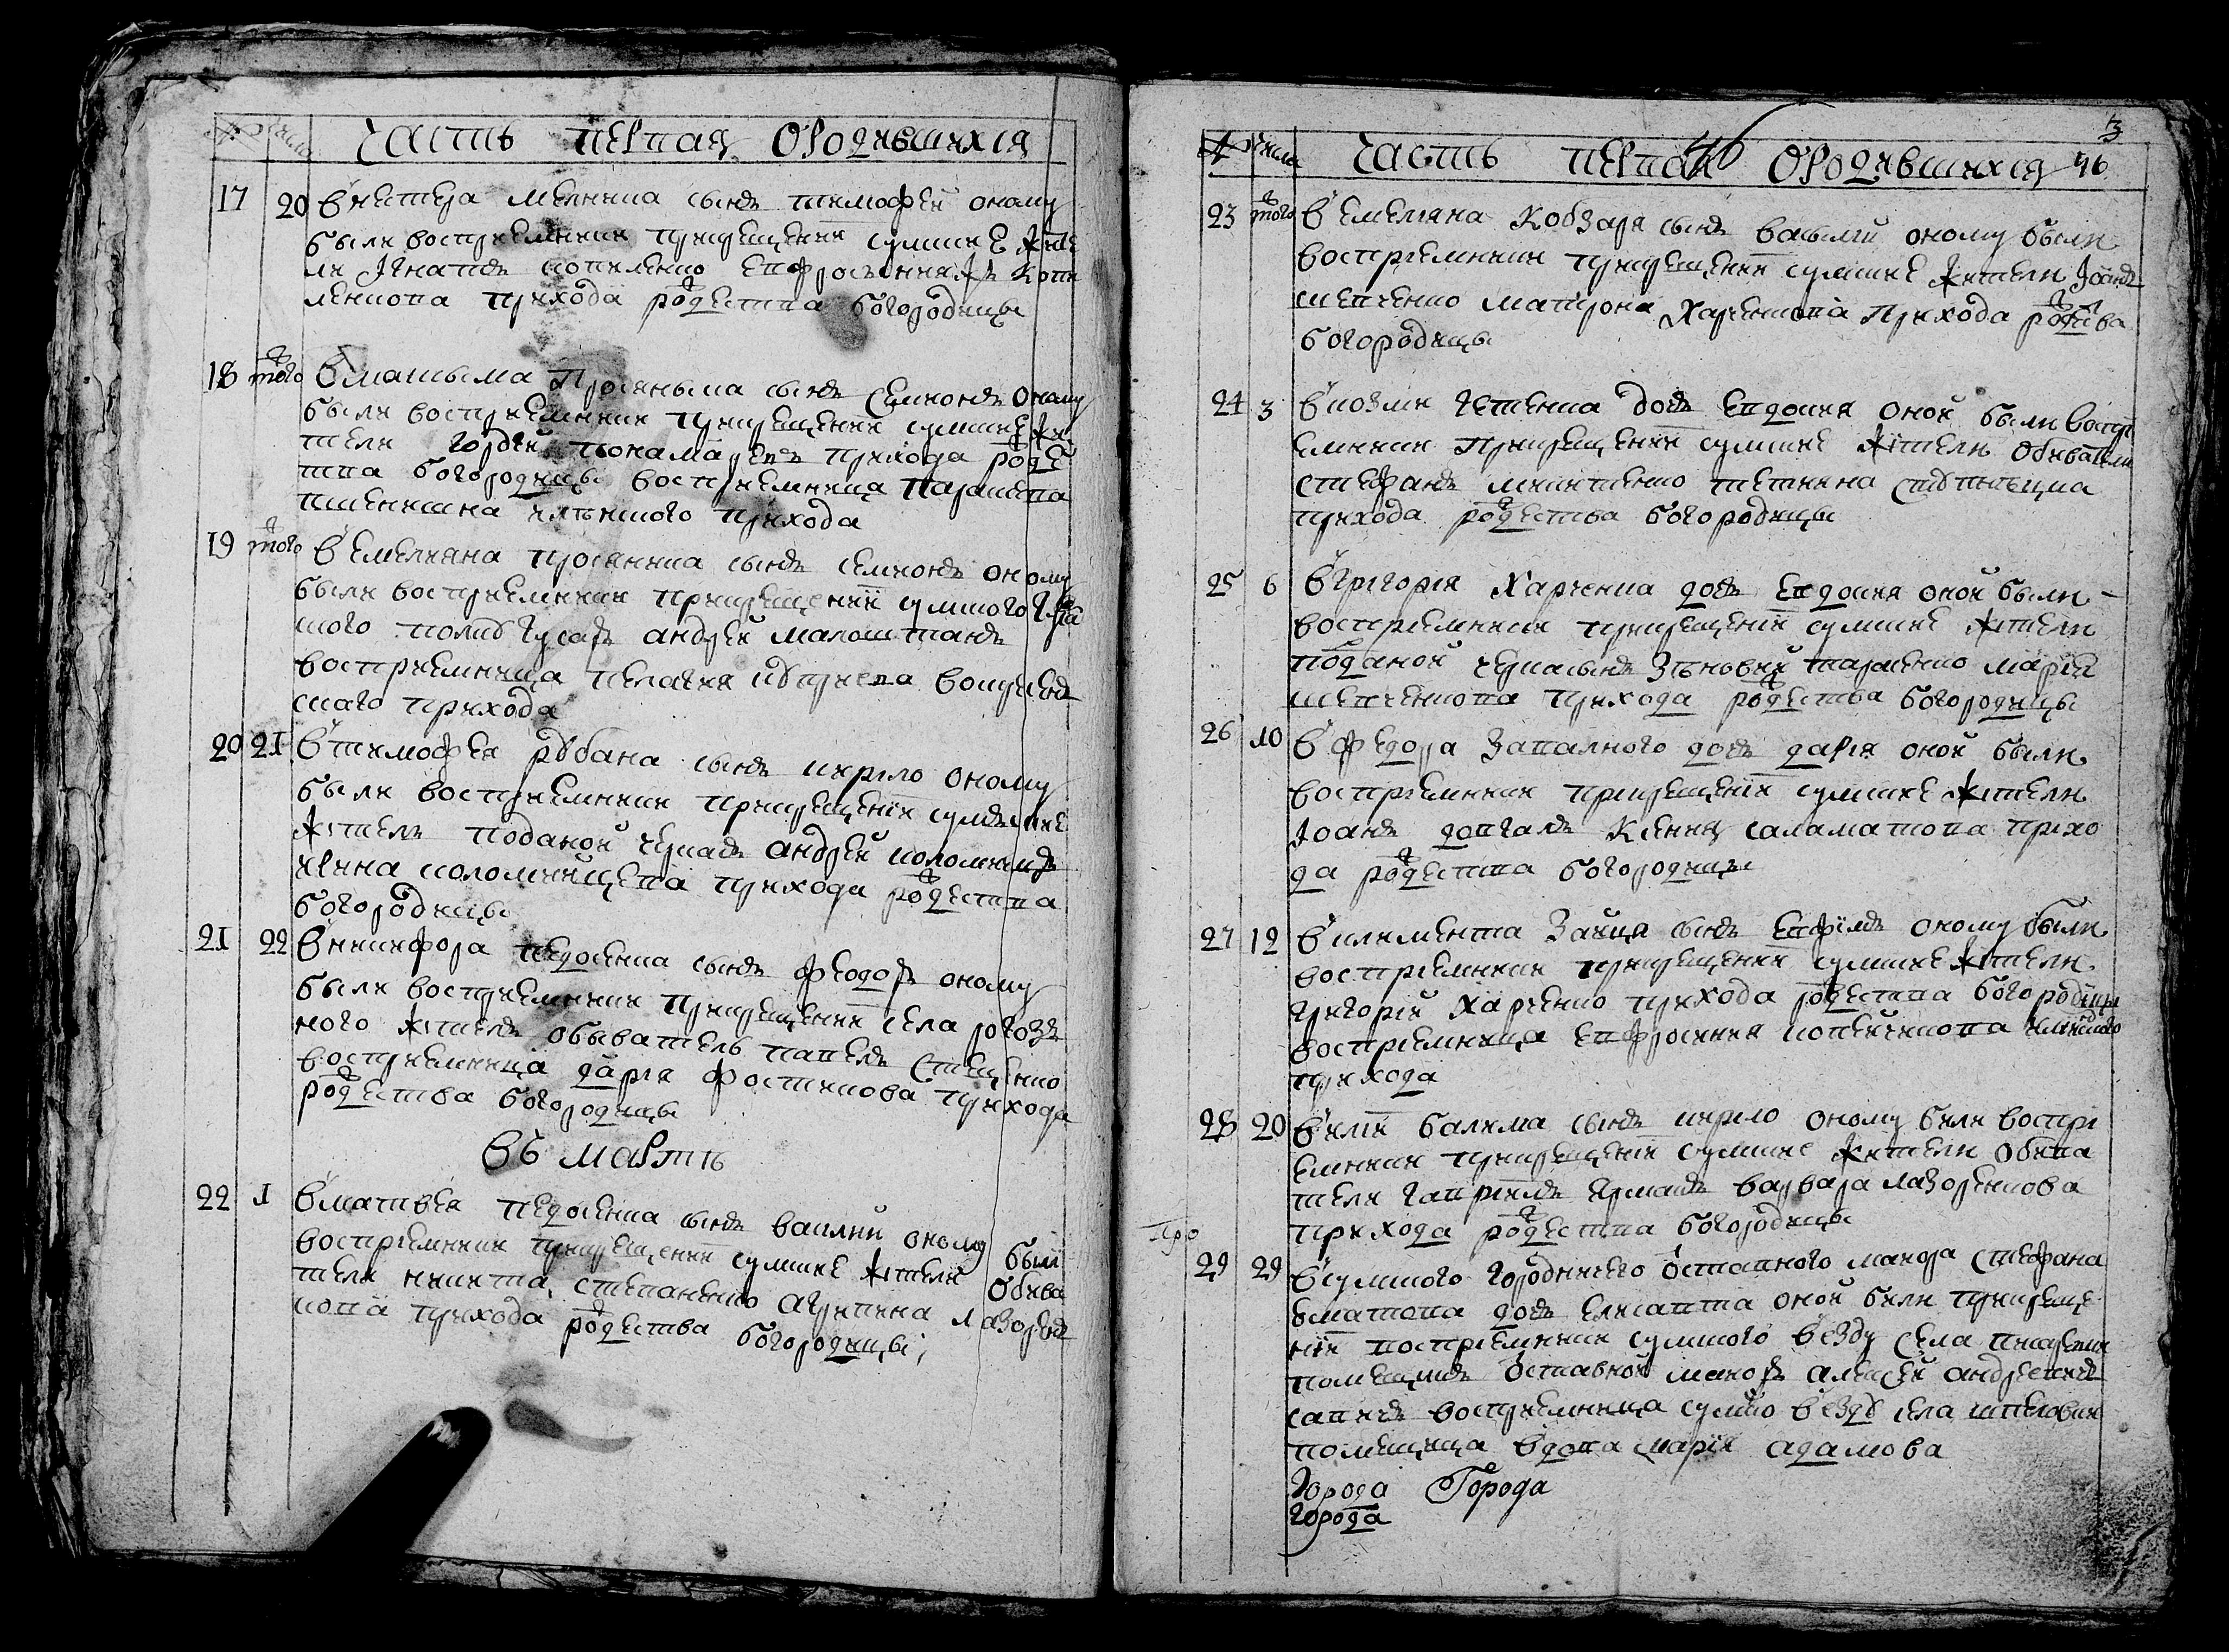 № числа Часть первая о родившихся
17 20 У петера мелника сынъ тимофей оному
были восприемники при крещении сумские жите
ли Игнатъ копиленко епфросиния копи
ленкова прихода рождества богородицы
18 того У сынъ Семионъ оному
были восприемники при крещении сумские жи
тели гордей понамаревъ прихода рожде
ства богородицы восприемница параскева
прихода
19 того У емелияна просянника сынъ семионъ оному
были восприемники при крещении сумского
ского полку гусаръ андрей малоштанъ
восприемница пелагия воскресен
скаго прихода
20 21 У тимофея рубана сынъ кирило оному
были восприемники при крещении сумские
жители поданой черкасъ андрей коломиецъ
ирина коломийцева прихода рождества
богородицы
21 22 У никифора педосенка сынъ феодоръ оному
были восприемники при крещении села
ного житель обыватель павелъ стеценко
восприемница дария фостикова прихода
рождества богородицы
Въ мартъ
22 1 У матвея педосенка сынъ василий оному были
восприемники при крещении сумские жители обыва
тели никита степаненко агрипина лазорен
кова прихода рождества богородицы
3
№ числа Часть первая о родившихся 46
23 того У емелияна кобзаря сынъ василий оному были
восприемники при крещении сумские жители Иоанъ
шевченко матрона харченкова прихода рождества
богородицы
24 3 У козми дочь евдокия оной были воспри
емники при крещении сумские жители обыватели
стефанъ тетияна
прихода рождества богородицы
25 6 У григория харченка дочь евдокия оной были
восприемники при крещении сумские жители
поданой черкасъ зѣновий тараненко мария
шевченкова прихода рождества богородицы
26 10 У федора запалного дочь дария оной были
восприемники при крещении сумские жители
Иоанъ довгаль ксения саламатова прихо
да рождества богородицы
27 12 У климента зайця сынъ ефимъ оному были
восприемники при крещении сумские жители
григорий харченко прихода рождества богородицы
восприемница епфросиния
прихода
28 20 У илии балима сынъ кирило оному были воспри
емники при крещении сумские жители обыва
тели гавриилъ ермакъ варвара лазоренкова
прихода рождества богородицы
Про
29 29 У сумского городничего отставного маиора стефана
дочь елисавта оной были при креще
нии восприемники сумского уезду села
помещикъ отставной маиоръ алексей андреевичъ
савичъ восприемница сумского уезду села
помещица вдова мария адамова
Города Города
Города